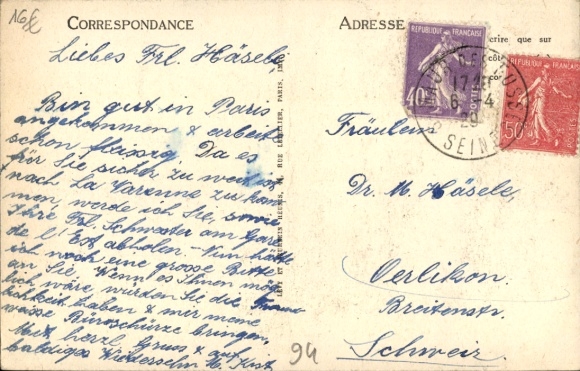 16 £
CORRESPONDANCE
ADRESSE
crire que sur
côt
Liebes Frl. Häsele
Bin gut in Paris
angekommen & arbeite
schon fleissig. Da es
für Sie sicher zu weit ist
nach La Varenne zu kom-
men, werde ich Sie, sowie
Ihre Frl. Schwester am Gare
de l'Est abholen. Nun hätte
ich noch eine grosse Bitte
an Sie. Wenn es Ihnen mög-
lich wäre würden Sie die Freund-
lichkeit haben & mir meine
weisse Büroschürze bringen.
Mit herzl. Gruss & auf
baldiges Wiedersehn M. Kist
RUE LE
PARIS
REPUBLIQUE FRANÇAISE
40
POSTES
REPUBLIQUE FRANÇAISE
50
17
6-4
29
SEINE
Fräulein
Dr. M. Häsele,
Oerlikon.
Breitenstr.
Schweiz.
94